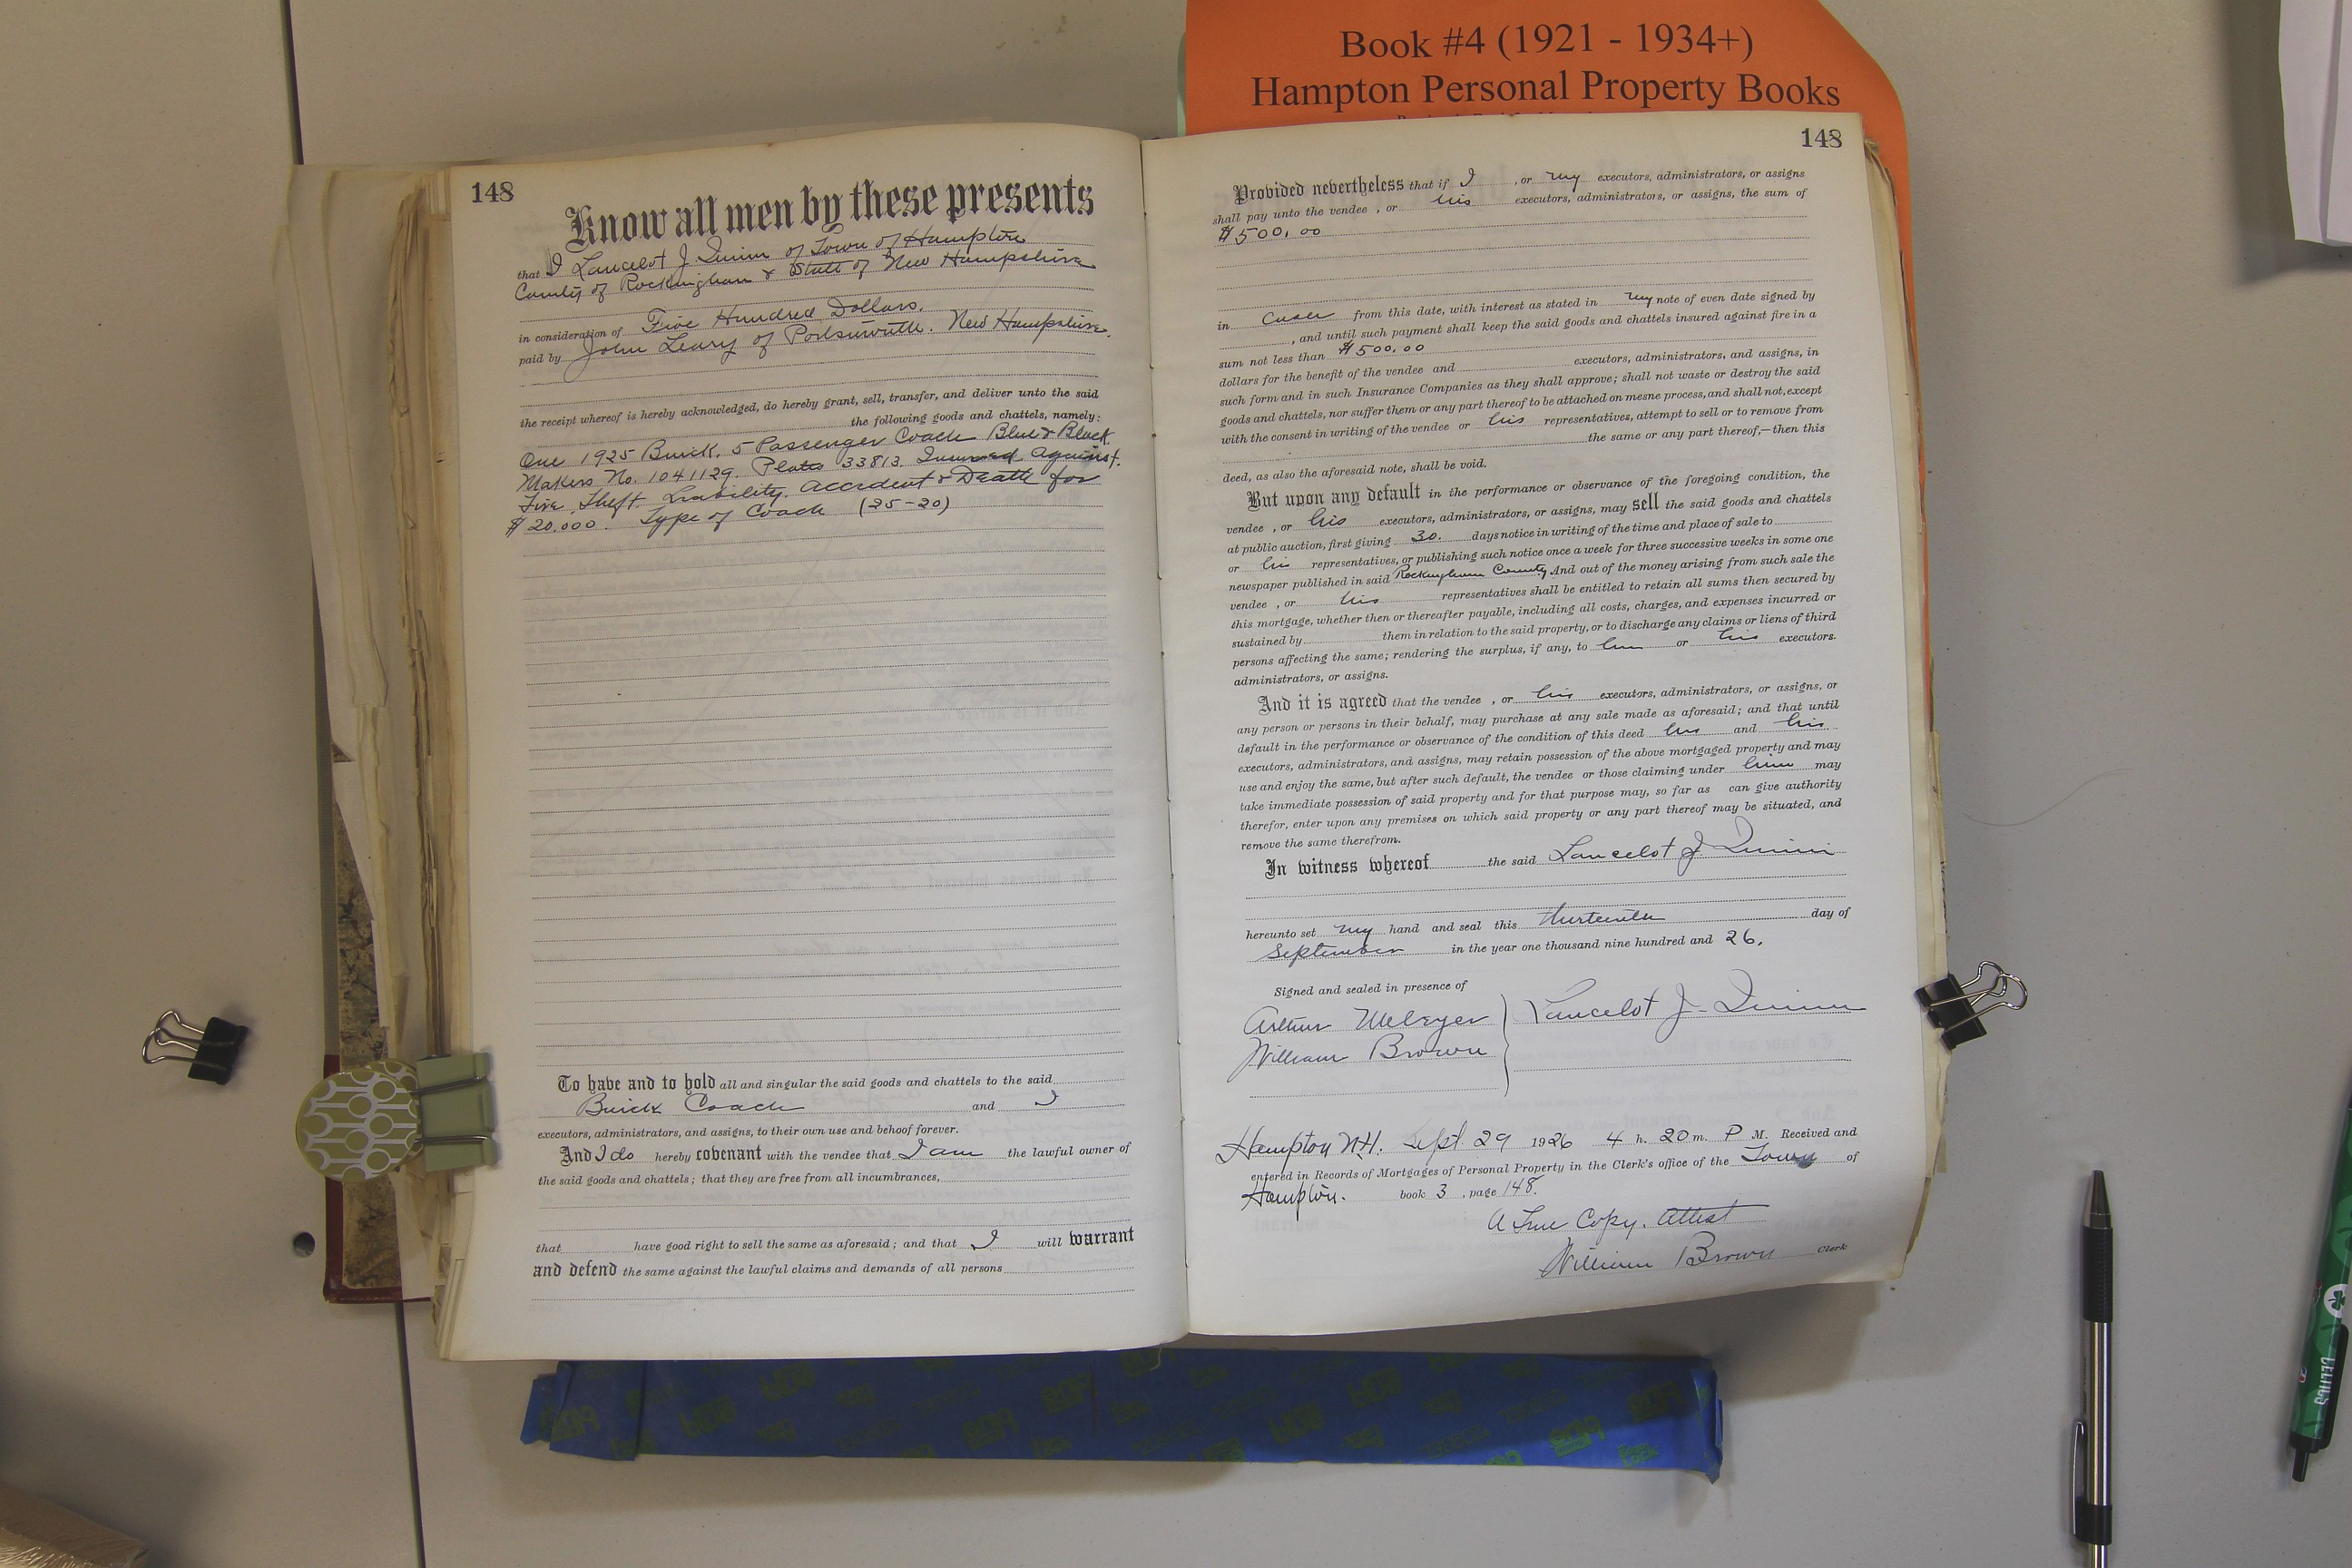 Book #4 (1921 - 1934+)
Hampton Personal Property Books
148
Know all men by these presents
that I Lancelot J Quinn of Town of Hampton
County of Rockingham & State of New Hampshire
in consideration of Five Hundred Dollars.
paid by John Leary of Portsmouth. New Hampshire.
the receipt whereof is hereby acknowledged, do hereby grant, sell, transfer, and deliver unto the said
the following goods and chattels, namely:
One 1925 Buick. 5 Passenger Coach Blue & Black.
Makers No. 1041129. Plates 33813. Insured Against.
Fire, Theft. Liability. Accident & Death for
$20.000. Type of Coach (25-20)
To have and to hold all and singular the said goods and chattels to the said
Buick Coach and I
executors, administrators, and assigns, to their own use and behoof forever.
And I do hereby covenant with the vendee that I am the lawful owner of
the said goods and chattels; that they are free from all incumbrances,
that have good right to sell the same as aforesaid; and that I will warrant
and defend the same against the lawful claims and demands of all persons
148
Provided nevertheless that if I , or my executors, administrators, or assigns
shall pay unto the vendee , or his executors, administrators, or assigns, the sum of
$500.00
in from this date, with interest as stated in my note of even date signed by
, and until such payment shall keep the said goods and chattels insured against fire in a
sum not less than $500.00
dollars for the benefit of the vendee and executors, administrators, and assigns, in
such form and in such Insurance Companies as they shall approve; shall not waste or destroy the said
goods and chattels, nor suffer them or any part thereof to be attached on mesne process, and shall not, except
with the consent in writing of the vendee or his representatives, attempt to sell or to remove from
the same or any part thereof,—then this
deed, as also the aforesaid note, shall be void.
But upon any default in the performance or observance of the foregoing condition, the
vendee , or his executors, administrators, or assigns, may sell the said goods and chattels
at public auction, first giving 30. days notice in writing of the time and place of sale to
or his representatives, or publishing such notice once a week for three successive weeks in some one
newspaper published in said Rockingham County And out of the money arising from such sale the
vendee , or his representatives shall be entitled to retain all sums then secured by
this mortgage, whether then or thereafter payable, including all costs, charges, and expenses incurred or
sustained by them in relation to the said property, or to discharge any claims or liens of third
persons affecting the same; rendering the surplus, if any, to him or his executors.
administrators, or assigns.
And it is agreed that the vendee , or his executors, administrators, or assigns, or
any person or persons in their behalf, may purchase at any sale made as aforesaid; and that until
default in the performance or observance of the condition of this deed his and his
executors, administrators, and assigns, may retain possession of the above mortgaged property and may
use and enjoy the same, but after such default, the vendee or those claiming under him may
take immediate possession of said property and for that purpose may, so far as can give authority
therefor, enter upon any premises on which said property or any part thereof may be situated, and
remove the same therefrom.
In witness whereof the said Lancelot J Quinn
hereunto set my hand and seal this thirteenth day of
September in the year one thousand nine hundred and 26.
Signed and sealed in presence of
Arthur Lancelot J. Quinn
William Brown
Hampton N.H. Sept 29 1926 4 h. 20 m. P M. Received and
entered in Records of Mortgages of Personal Property in the Clerk's office of the Town of
Hampton. book 3 , page 148.
A True Copy. Attest
William Brown Clerk